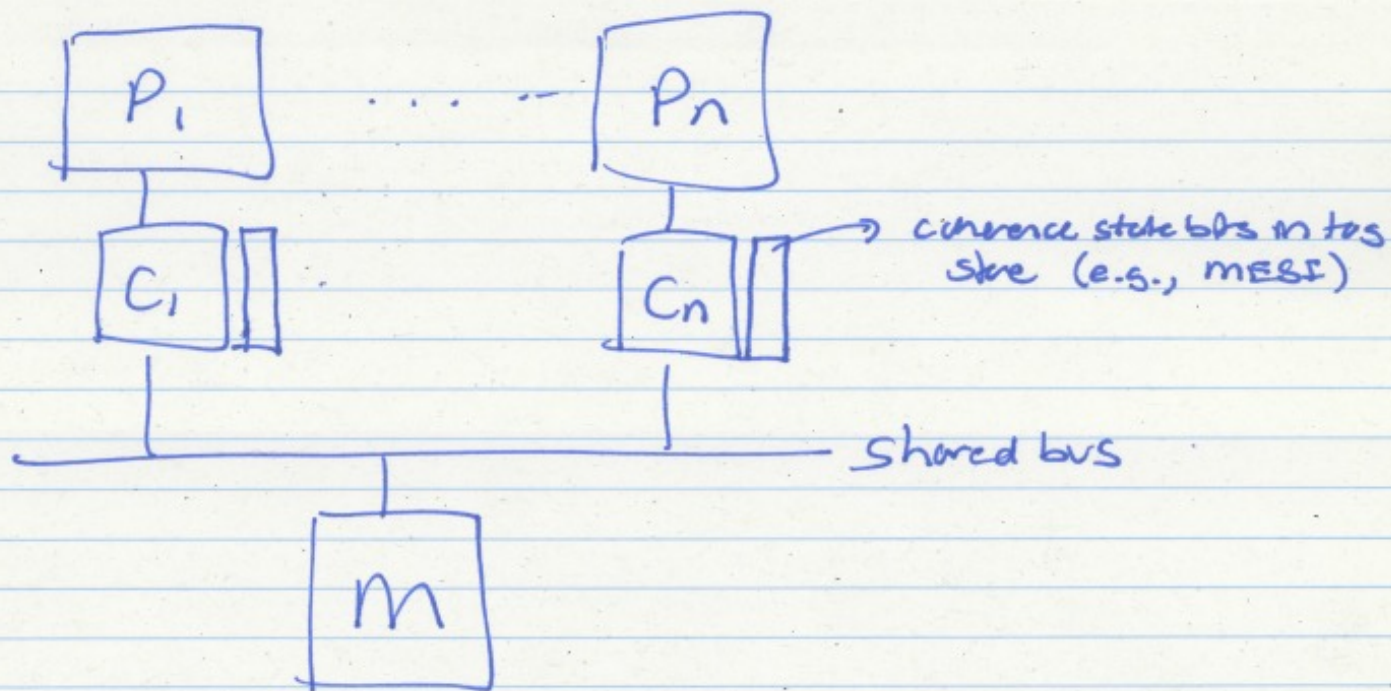 P1 .... -- Pn
C1
Cn
→ coherence state bits in tag
store (e.g., MESI)
Shared bus
M